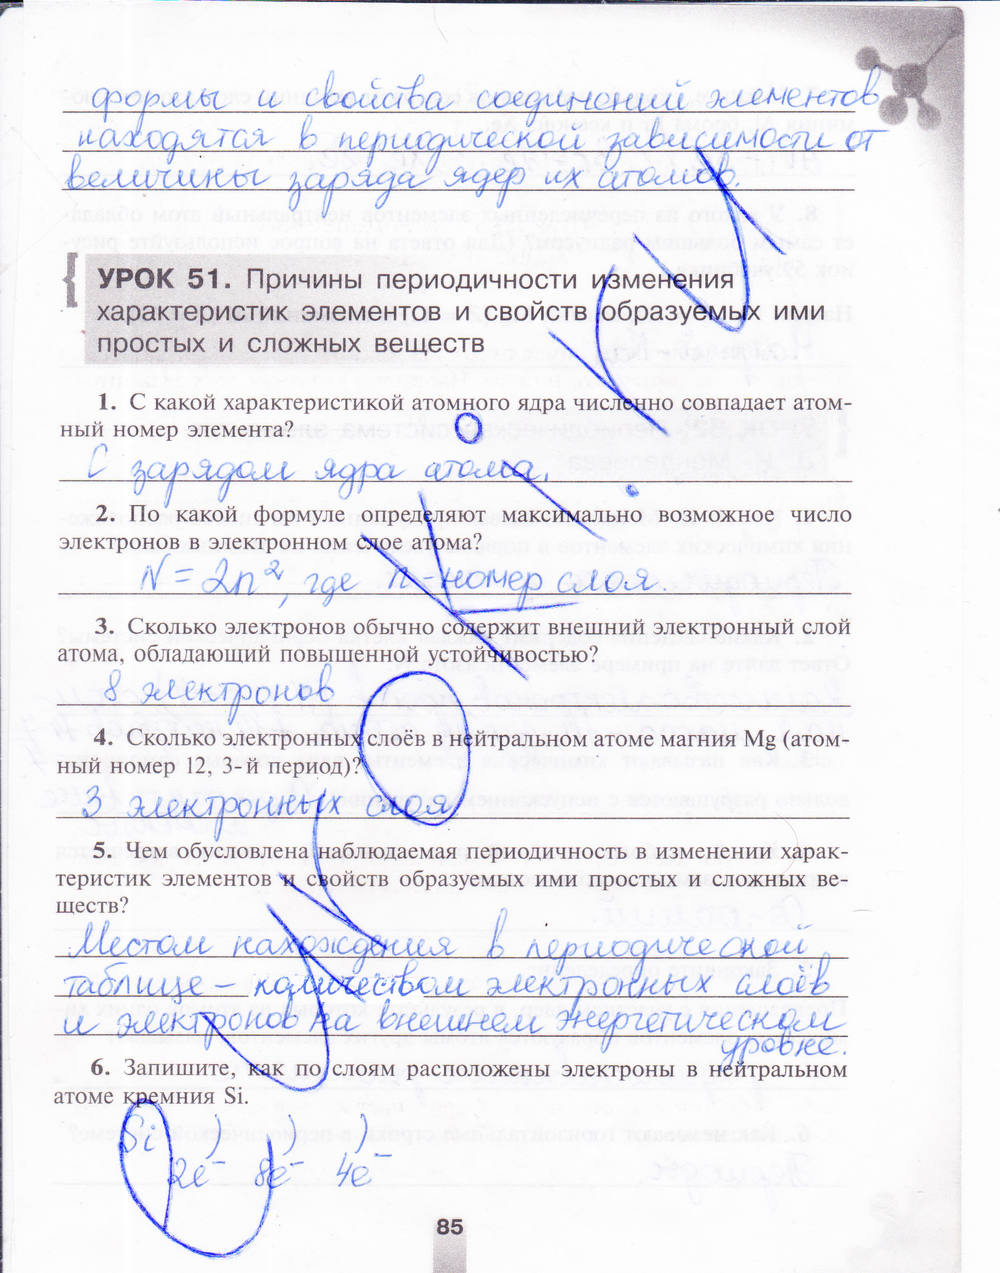 формы и свойства соединений элементов
находятся в периодической зависимости от
величины заряда ядер их атомов.
УРОК 51. Причины периодичности изменения
характеристик элементов и свойств образуемых ими
простых и сложных веществ
1. С какой характеристикой атомного ядра численно совпадает атом-
ный номер элемента?
С зарядом ядра атома.
2. По какой формуле определяют максимально возможное число
электронов в электронном слое атома?
N = 2n², где n - номер слоя.
3. Сколько электронов обычно содержит внешний электронный слой
атома, обладающий повышенной устойчивостью?
8 электронов
4. Сколько электронных слоёв в нейтральном атоме магния Mg (атом-
ный номер 12, 3-й период)?
3 электронных слоя
5. Чем обусловлена наблюдаемая периодичность в изменении харак-
теристик элементов и свойств образуемых ими простых и сложных ве-
ществ?
Местом нахождения в периодической
таблице – количеством электронных слоёв
и электронов на внешнем энергетическом
уровне.
6. Запишите, как по слоям расположены электроны в нейтральном
атоме кремния Si.
Si ) ) )
2e⁻ 8e⁻ 4e⁻
85